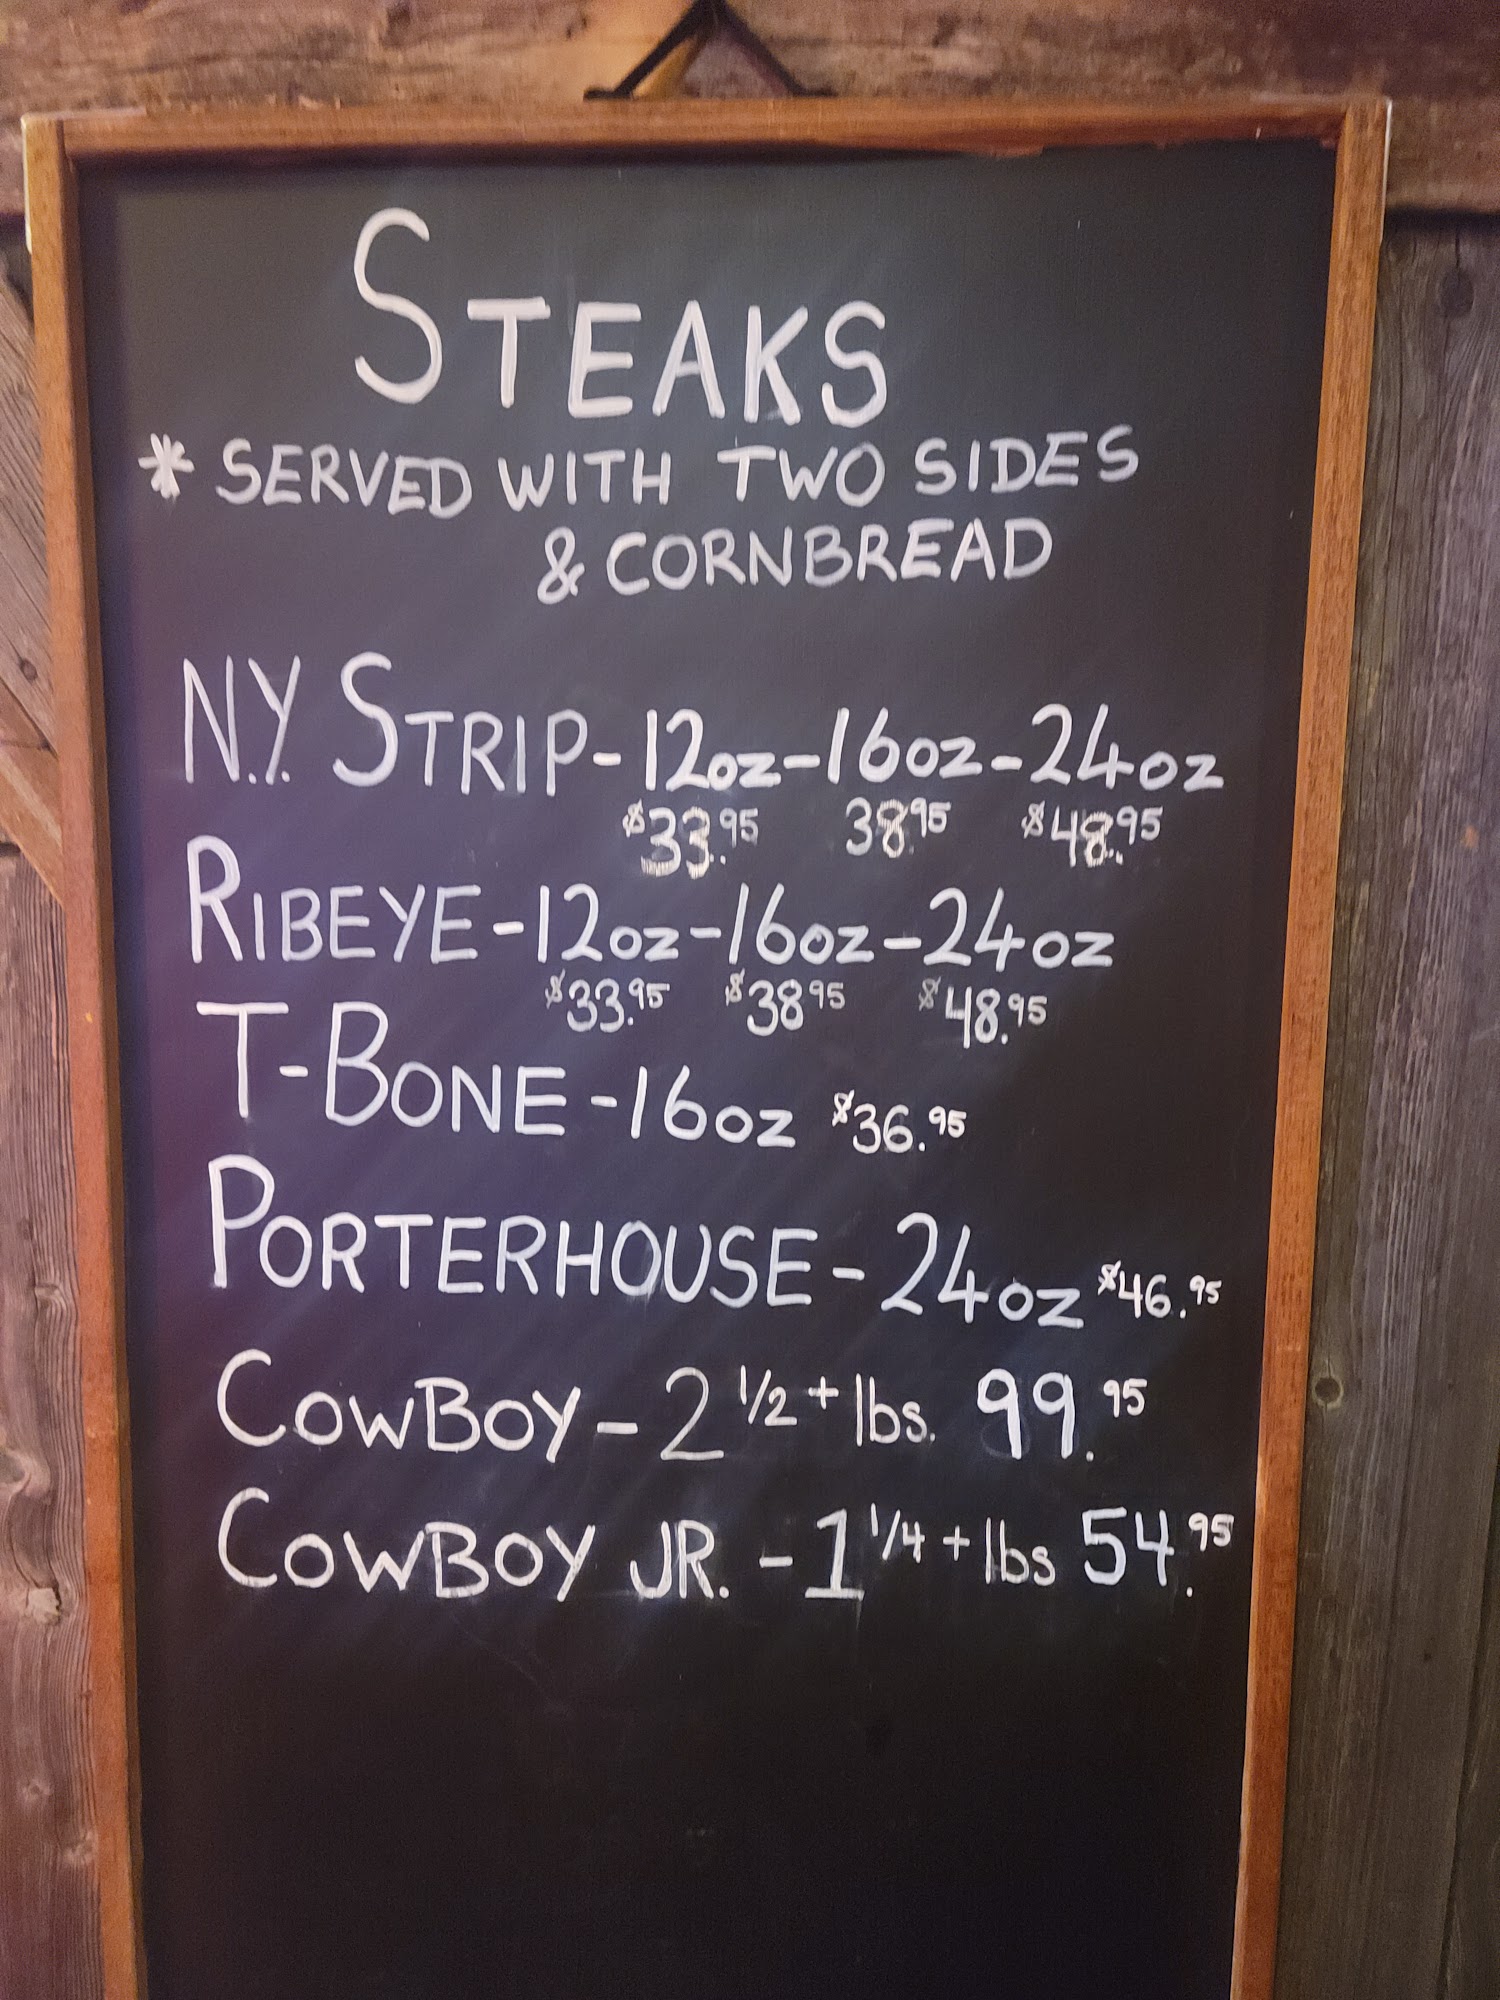 STEAKS
* SERVED WITH TWO SIDES
& CORNBREAD
N.Y. STRIP - 12oz - 16oz - 24oz
$33.95 38.95 $48.95
RIBEYE - 12oz - 16oz - 24oz
$33.95 $38.95 $48.95
T-BONE - 16oz $36.95
PORTERHOUSE - 24oz $46.95
COWBOY - 2 1/2 + lbs. 99.95
COWBOY JR. - 1 1/4 + lbs 54.95